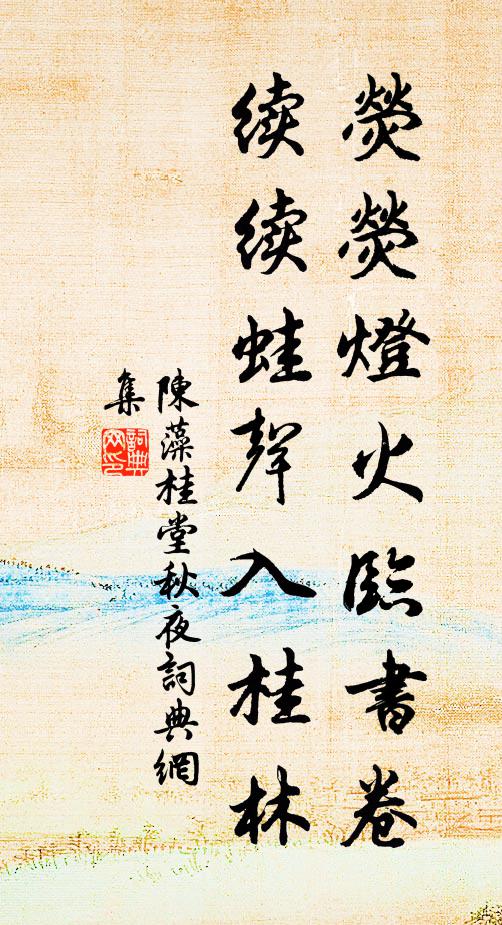 熒熒燈火臨書卷
续续蛙聲入桂林
陳藻桂堂秋夜詞典網
集
詞典网印